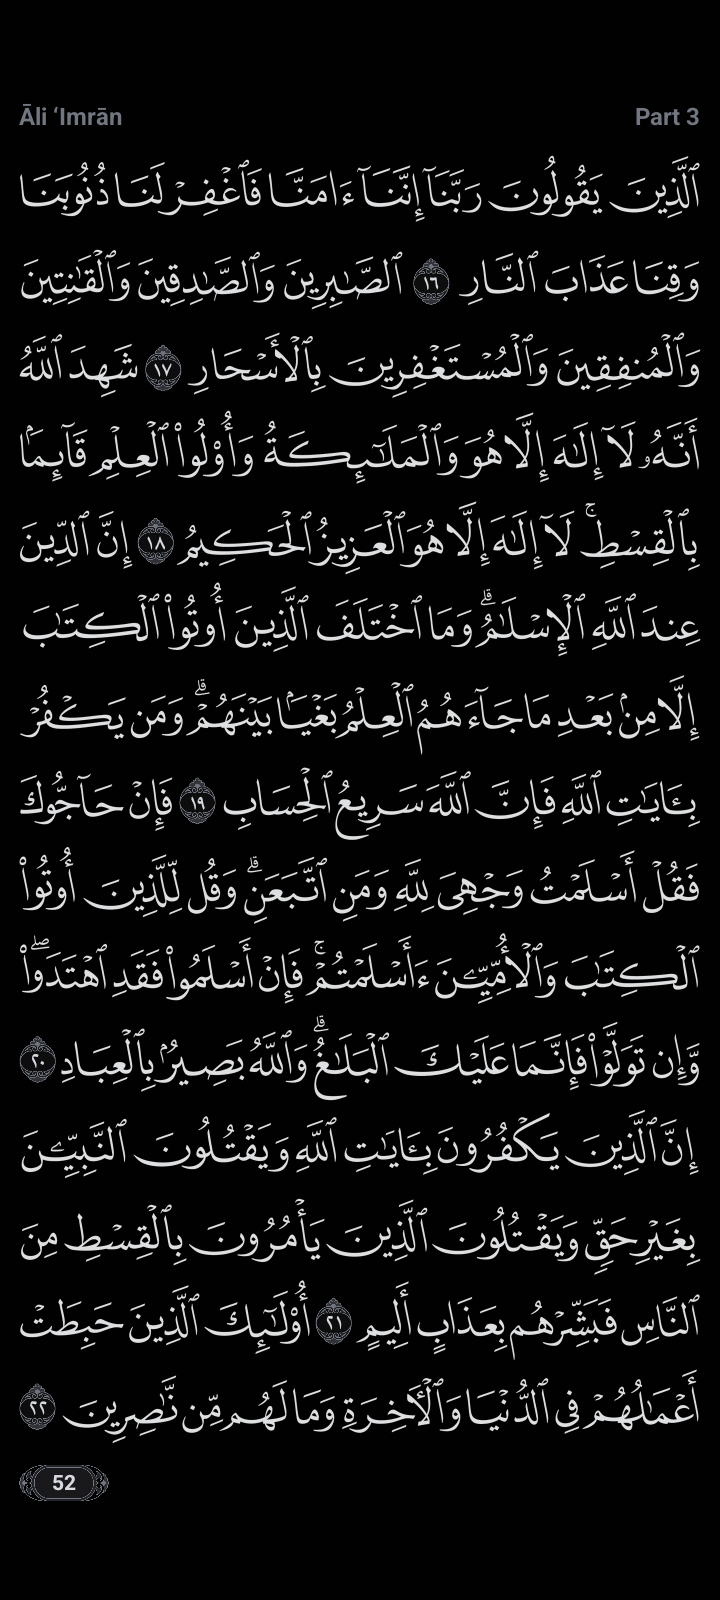 Āli ‘Imrān
Part 3
ٱلَّذِينَ يَقُولُونَ رَبَّنَآ إِنَّنَآ ءَامَنَّا فَٱغۡفِرۡ لَنَا ذُنُوبَنَا
وَقِنَا عَذَابَ ٱلنَّارِ ١٦ ٱلصَّٰبِرِينَ وَٱلصَّٰدِقِينَ وَٱلۡقَٰنِتِينَ
وَٱلۡمُنفِقِينَ وَٱلۡمُسۡتَغۡفِرِينَ بِٱلۡأَسۡحَارِ ١٧ شَهِدَ ٱللَّهُ
أَنَّهُۥ لَآ إِلَٰهَ إِلَّا هُوَ وَٱلۡمَلَٰٓئِكَةُ وَأُوْلُواْ ٱلۡعِلۡمِ قَآئِمَۢا
بِٱلۡقِسۡطِۚ لَآ إِلَٰهَ إِلَّا هُوَ ٱلۡعَزِيزُ ٱلۡحَكِيمُ ١٨ إِنَّ ٱلدِّينَ
عِندَ ٱللَّهِ ٱلۡإِسۡلَٰمُۗ وَمَا ٱخۡتَلَفَ ٱلَّذِينَ أُوتُواْ ٱلۡكِتَٰبَ
إِلَّا مِنۢ بَعۡدِ مَا جَآءَهُمُ ٱلۡعِلۡمُ بَغۡيَۢا بَيۡنَهُمۡۗ وَمَن يَكۡفُرۡ
بِـَٔايَٰتِ ٱللَّهِ فَإِنَّ ٱللَّهَ سَرِيعُ ٱلۡحِسَابِ ١٩ فَإِنۡ حَآجُّوكَ
فَقُلۡ أَسۡلَمۡتُ وَجۡهِيَ لِلَّهِ وَمَنِ ٱتَّبَعَنِۗ وَقُل لِّلَّذِينَ أُوتُواْ
ٱلۡكِتَٰبَ وَٱلۡأُمِّيِّـۧنَ ءَأَسۡلَمۡتُمۡۚ فَإِنۡ أَسۡلَمُواْ فَقَدِ ٱهۡتَدَواْۖ
وَّإِن تَوَلَّوۡاْ فَإِنَّمَا عَلَيۡكَ ٱلۡبَلَٰغُۗ وَٱللَّهُ بَصِيرُۢ بِٱلۡعِبَادِ ٢٠
إِنَّ ٱلَّذِينَ يَكۡفُرُونَ بِـَٔايَٰتِ ٱللَّهِ وَيَقۡتُلُونَ ٱلنَّبِيِّـۧنَ
بِغَيۡرِ حَقّٖ وَيَقۡتُلُونَ ٱلَّذِينَ يَأۡمُرُونَ بِٱلۡقِسۡطِ مِنَ
ٱلنَّاسِ فَبَشِّرۡهُم بِعَذَابٍ أَلِيمٍ ٢١ أُوْلَٰٓئِكَ ٱلَّذِينَ حَبِطَتۡ
أَعۡمَٰلُهُمۡ فِي ٱلدُّنۡيَا وَٱلۡأٓخِرَةِ وَمَا لَهُم مِّن نَّٰصِرِينَ ٢٢
52